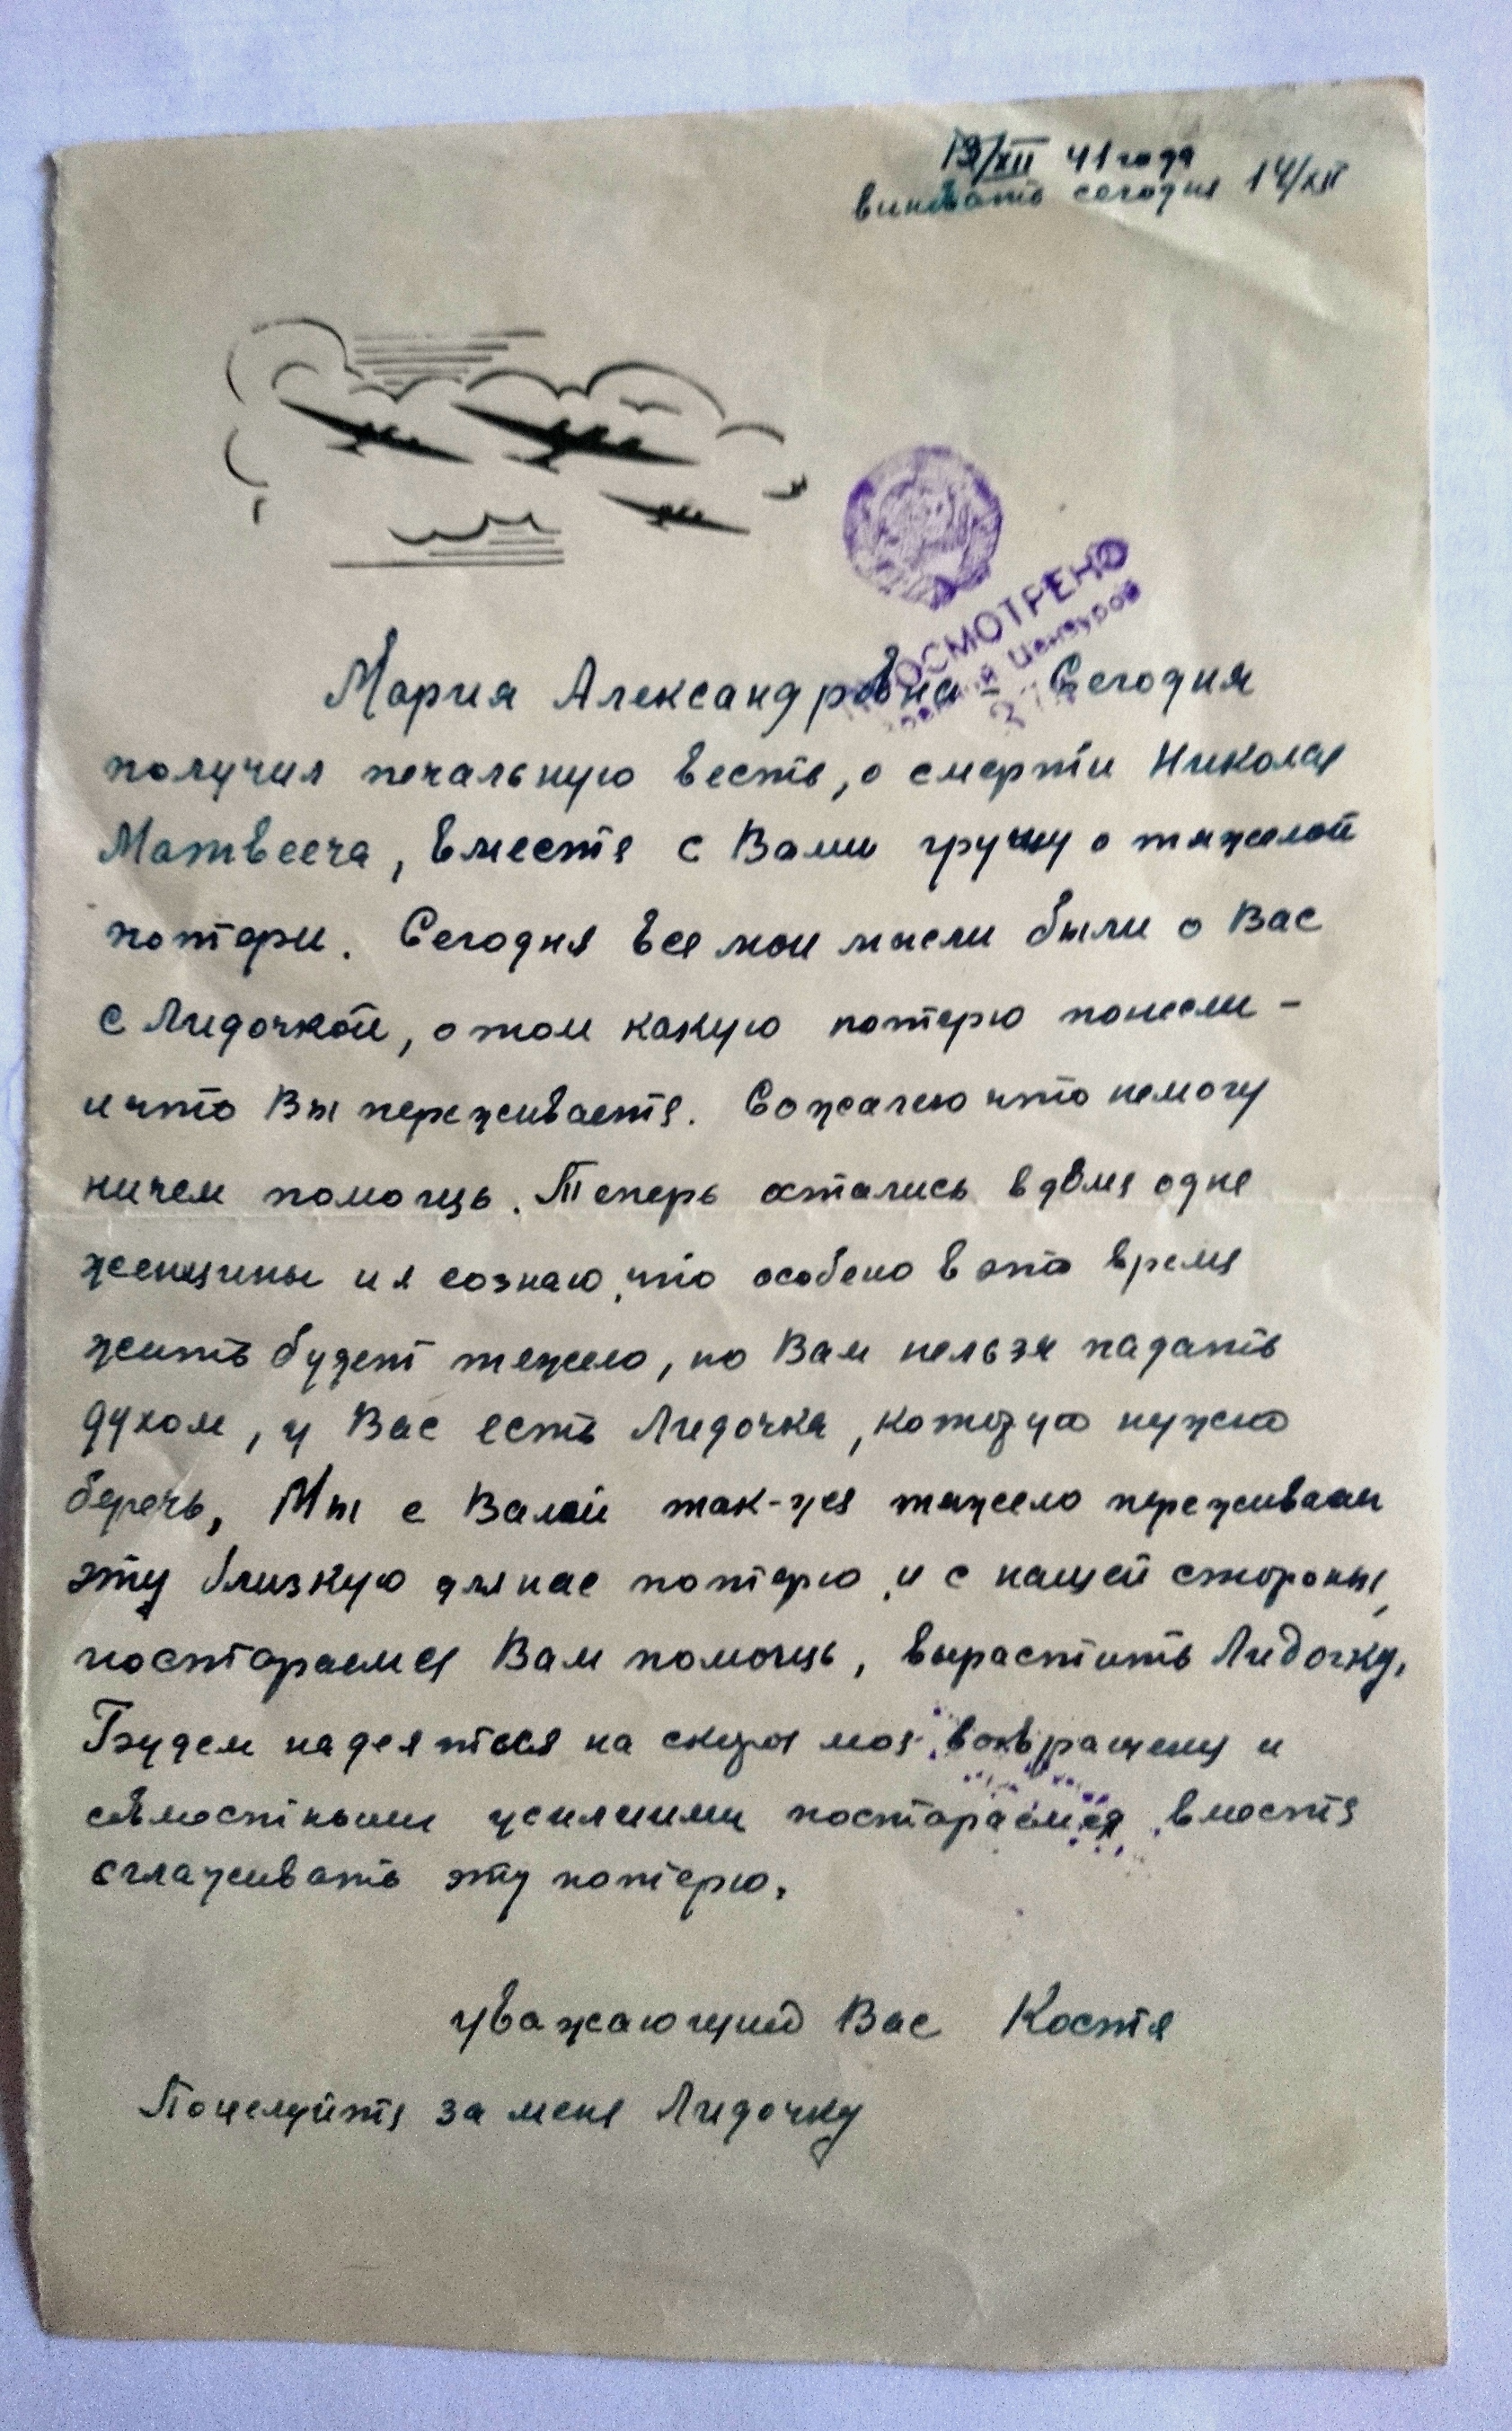 13/XII 41 года
виноват сегодня 14/XII
ПРОСМОТРЕНО
Военной Цензурой
Мария Александровна – Сегодня
получил печальную весть, о смерти Николая
Матвееча, вместе с Вами грущу о тяжелой
потери. Сегодня все мои мысли были о Вас
с Лидочкой, о том какую потерю понесли –
и что Вы переживаете. Сожалею что немогу
ничем помощь. Теперь остались в доме одне
женщины и я сознаю, что особено в это время
жить будет тежело, но Вам нельзя падать
духом, у Вас есть Лидочка, которую нужно
беречь, Мы с Валей так-же тяжело переживаем
эту близкую для нас потерю, и с нашей стороны,
постараемся Вам помощь, вырастить Лидочку.
Будем надеяться на скорое мое возвращение и
совместными усилиями постараемся, вместе
сглаживать эту потерю.
уважающий Вас Костя
Поцелуйте за меня Лидочку